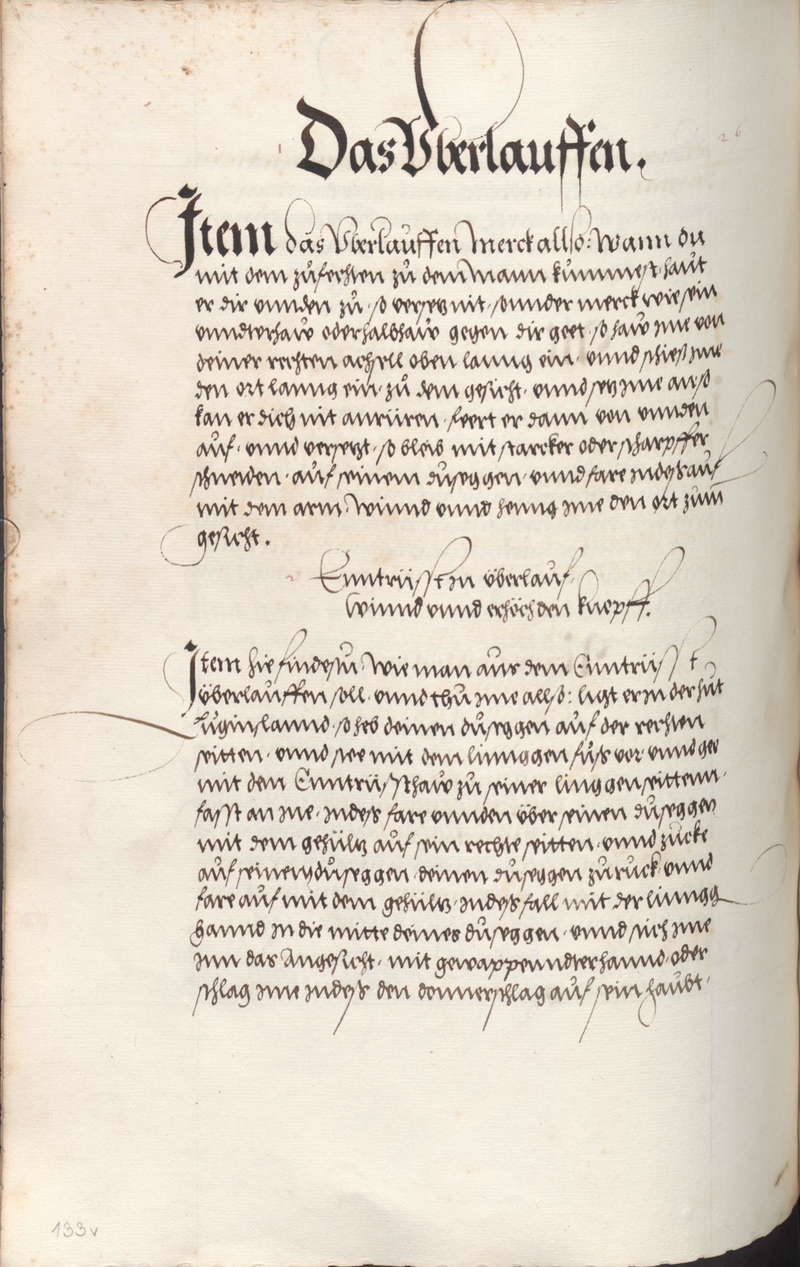 Das Vberlauffen.
26
Item das Vberlauffen merck allso: wann du
mit dem zůfechten zů dem mann kummest · haut
er dir vnnden zů · so versetz nit · sonnder merck wie sein
vnndterhaw oder halbhaw gegen dir geet · so haw ime von
deiner rechten achsell oben lanng ein · vnnd schiess ime
den ort lanng ein · zů dem gesicht · vnnd setz ime an · so
kan er dich nit anrüren · feert er dann von vnnden
auf · vnnd versetzt · so bleib mit starcker oder scharpffer
schneiden · auf seinem duseggen · vnnd fare indes auf
mit dem arm · winnd vnnd heng ime den ort zum
gesicht .
Enntrüsst in überlauf
winnd vnnd erhöch den knepff.
Item hie findestu wie man aus dem Enntrüsst
überlauffen soll · vnnd thu ime allso: ligt er in der hut
Luginslannd · so heb deinen duseggen auf der rechten
seitten · vnnd stee mit dem linnggen fůss vor · vnnd gee
mit dem Enntrüssthaw zů seiner linggen seittenn ·
fasst an ine · indess fare vnnden über seinen duseggen
mit dem gehültz auf sein rechte seitten · vnnd zucke
auf seinem duseggen · deinen duseggen zuruck · vnnd
fare auf mit dem gehültz · indess fall mit der linngg
hannd in die mitte deines duseggen · vnnd stich ime
inn das Angesicht · mit gewappenndter hannd · oder
schlag ime indess den donnerschlag auf sein haubt ·
133v